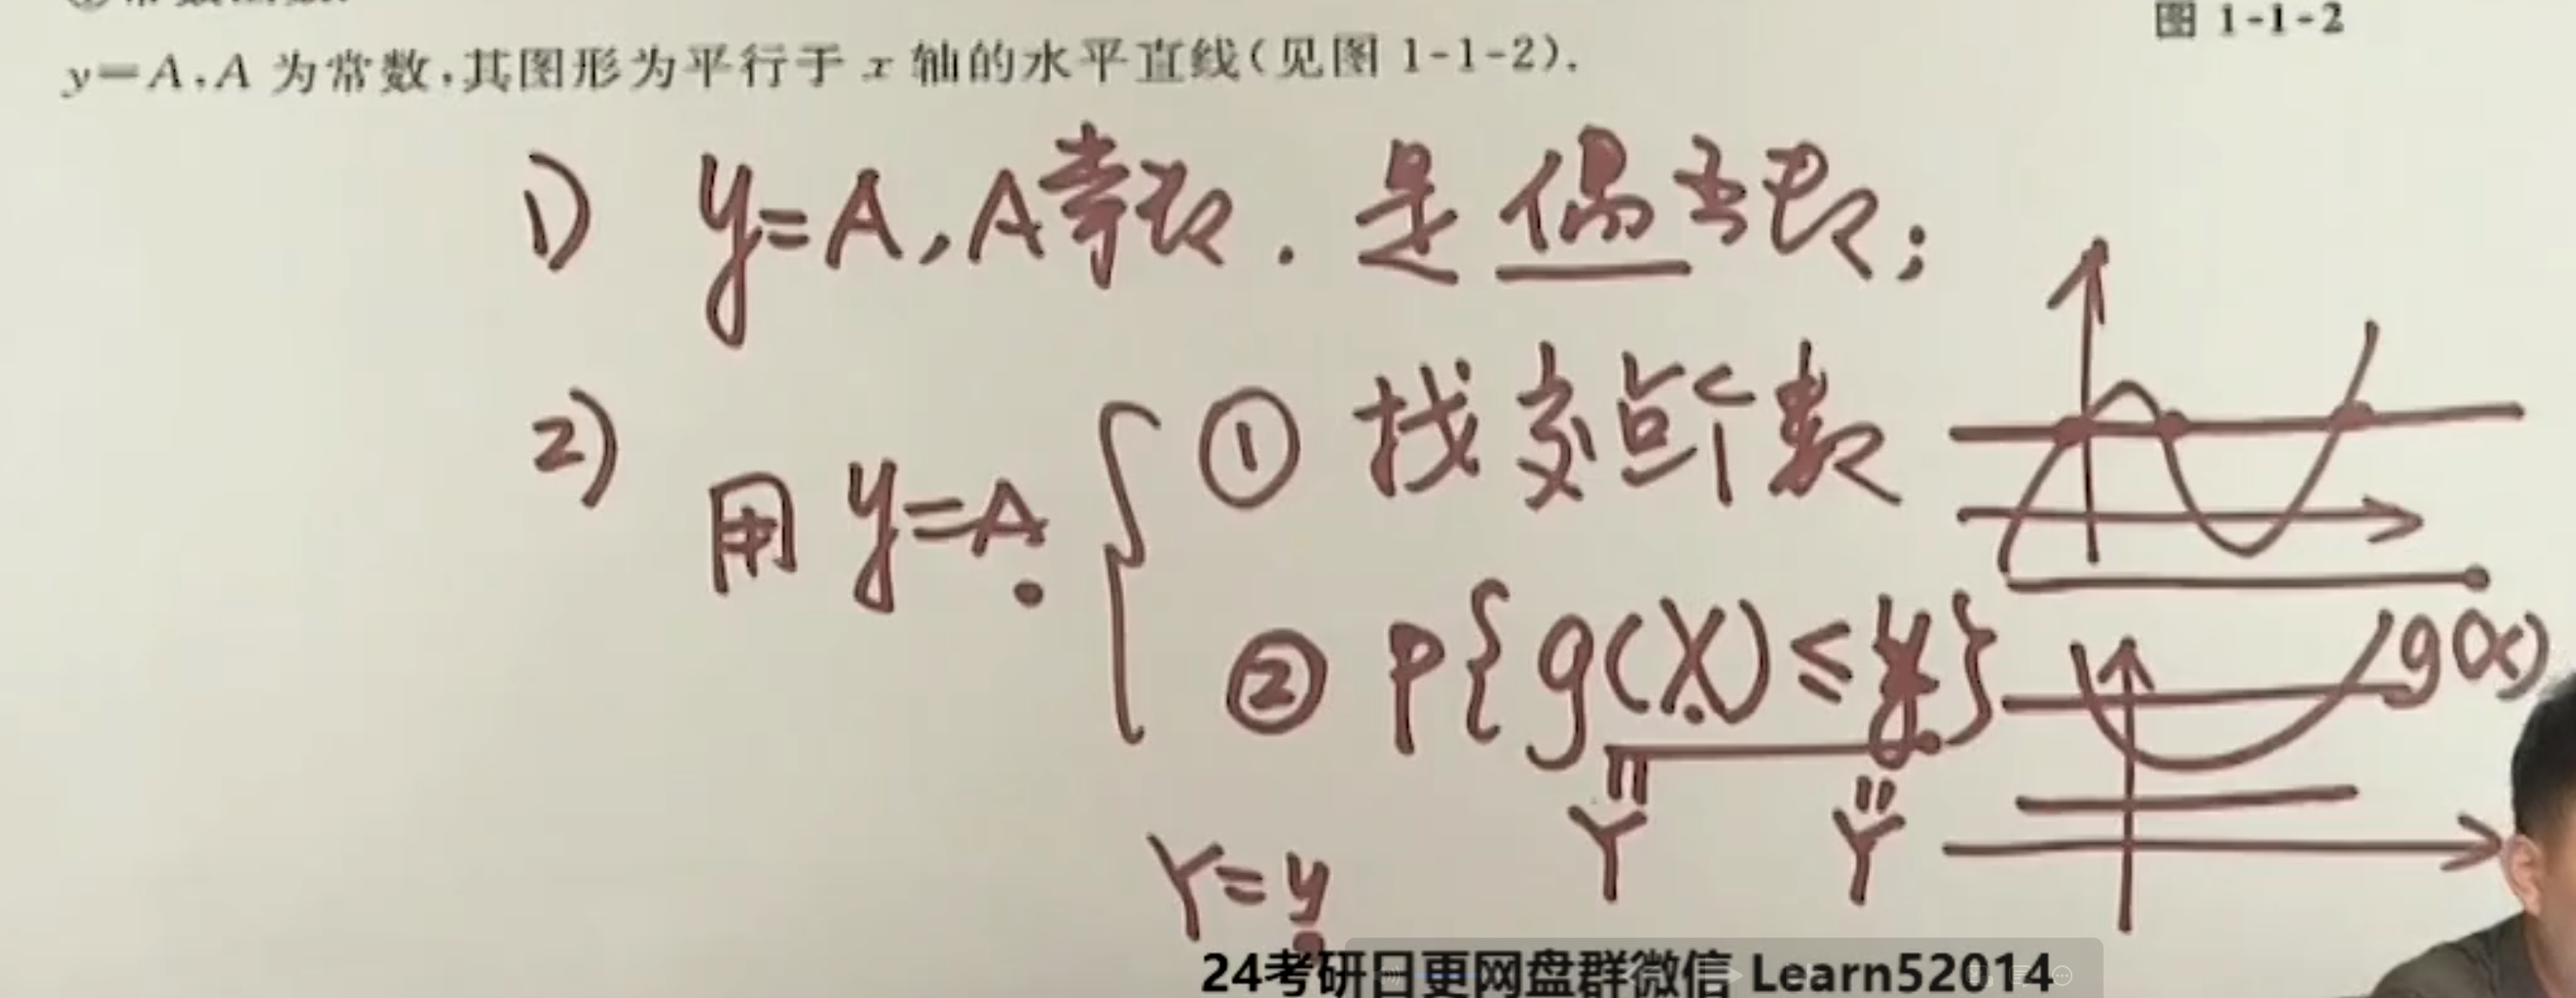 图 1-1-2
y=A,A 为常数,其图形为平行于 x 轴的水平直线(见图 1-1-2).
1) y=A,A常数. 是偶函数;
2) 用 y=A
① 找交点个数
② P{g(X)≤y}
g(x)
Y Y
Y=y
24考研日更网盘群微信 Learn52014